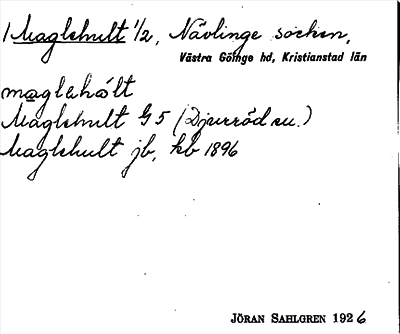 1 Maglehult 1/2, Nävlinge socken,
Västra Göinge hd, Kristianstad län
maglehólt
Maglehult G5 (Djurröd su.)
Maglehult jb, kb 1896
JÖRAN SAHLGREN 1926